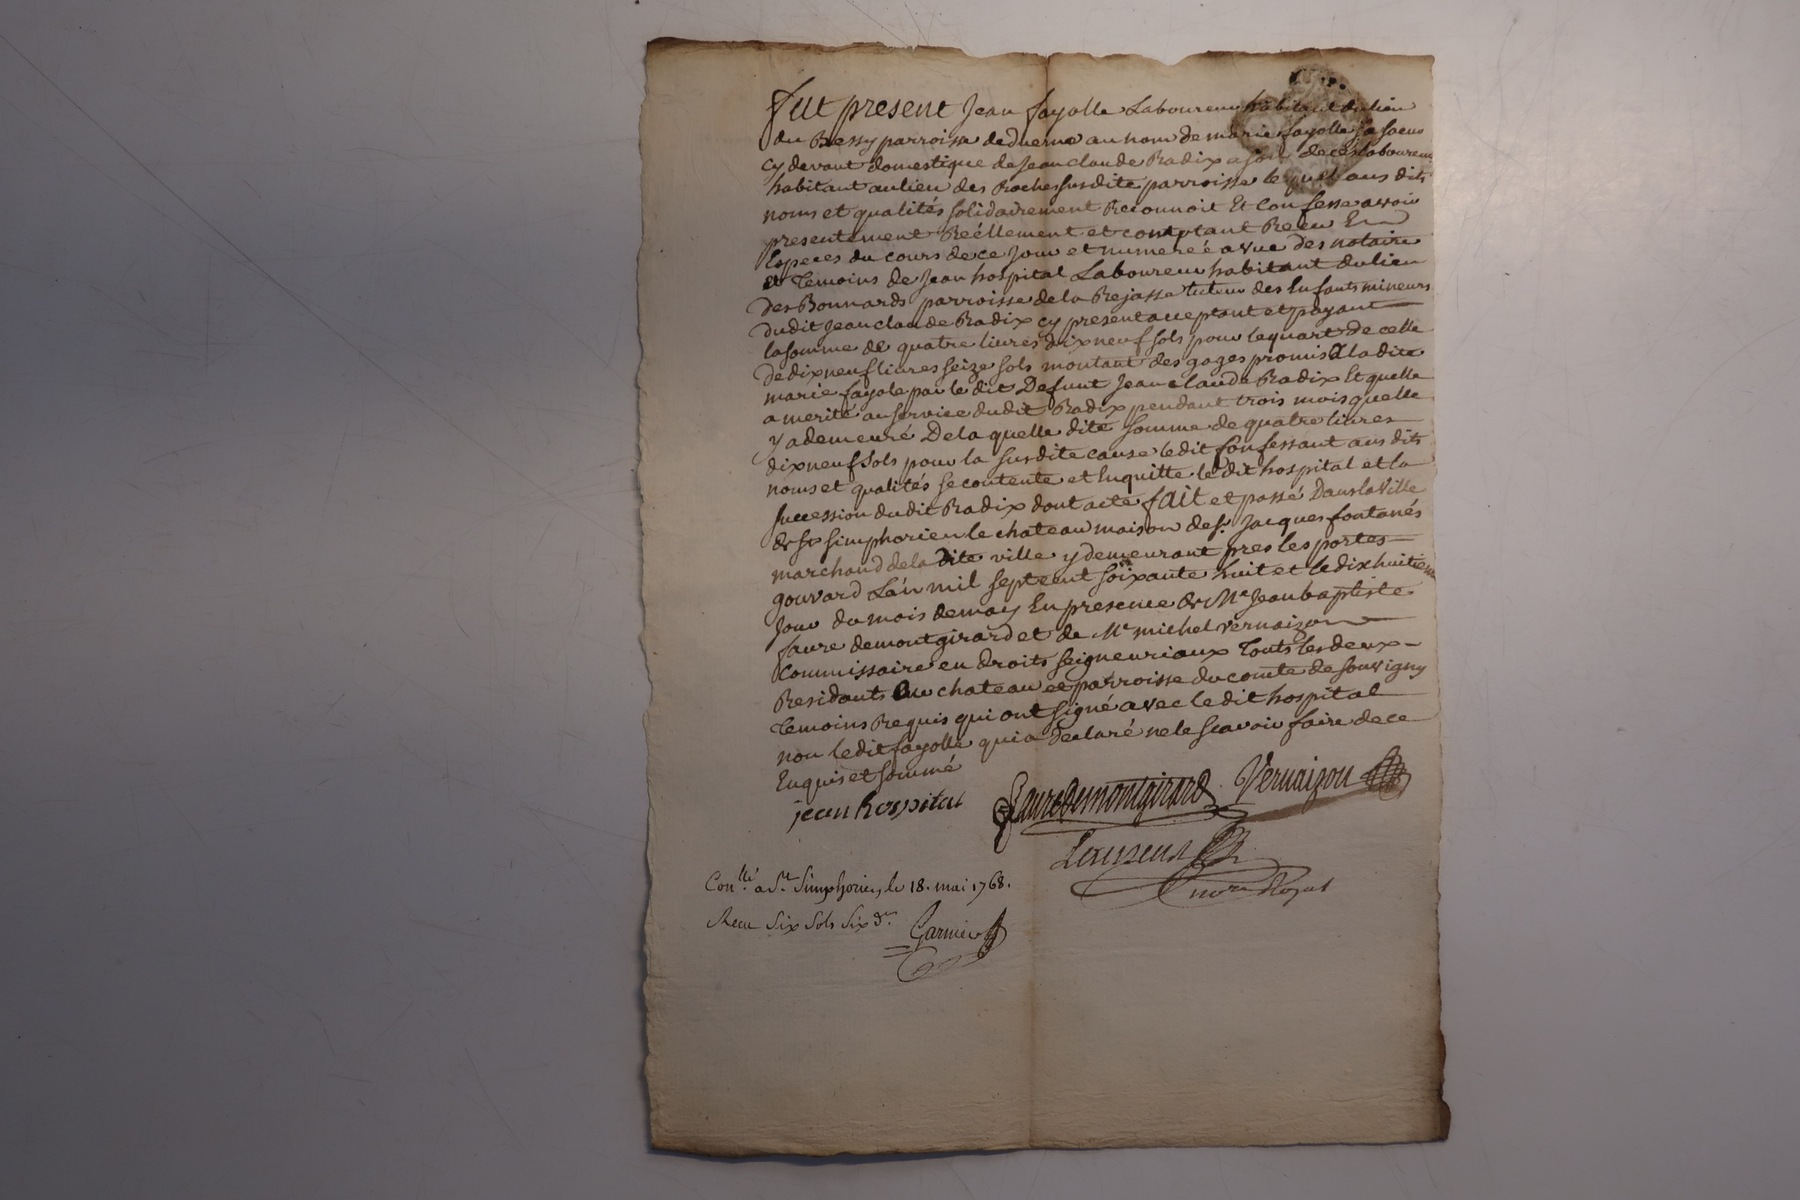 fut present Jean fayolle Laboureur habitant du lieu
du Bessy parroisse deduerne au nom de marie fayolle sa soeur
cy devant domestique de Jean claude Radix laboureur
habitant au lieu des Roches susdite parroisse lequel aus dits
noms et qualités solidairement Reconnoit Et Confesse avoir
presentement Reéllement et comptant Receu En
Especes du cours de ce Jour et numereé a vue des notaire
et Temoins de Jean hospital Laboureur habitant du lieu
des Bonnards parroisse de la Rejasse tuteur des Enfants mineurs
dudit Jean claude Radix cy present acceptant et payant
la somme de quatre livres dixneuf sols pour le quart de celle
de dixneuf livres seize sols montant des gages promis a la dite
marie fayole par le dit Defunt Jean claude Radix Et quelle
a merité au service dudit Radix pendant trois mois quelle
y a demeuré De la quelle dite somme de quatre livres
dixneuf sols pour la susdite cause ledit Confessant aus dits
noms et qualités se contente et Enquitte le dit hospital et la
succession dudit Radix dont acte fait et passé Dans la Ville
de St simphorien le chateau maison de sr. Jacques fontanés
marchand de la Dite ville y demeurant pres les portes
gouvard L'an mil septcent soixante huit et le dix huitieme
Jour du mois de may En presence de Me Jean baptiste
faure de montgirard et de Me michel vernaizon
Commissaire en droits seigneuriaux Touts les deux
Residants Au chateau et parroisse du comté de souvigny
Temoins Requis qui ont signé avec le dit hospital
non le dit fayolle qui a Declaré ne le scavoir faire de ce
Enquis et sommé
jean hospital Fauredemontgirard Vernaizon
Laurent
nore Royal
Conllé a St. Simphorien le 18. mai 1768.
Recu Six Sols Six drs.
Garnier